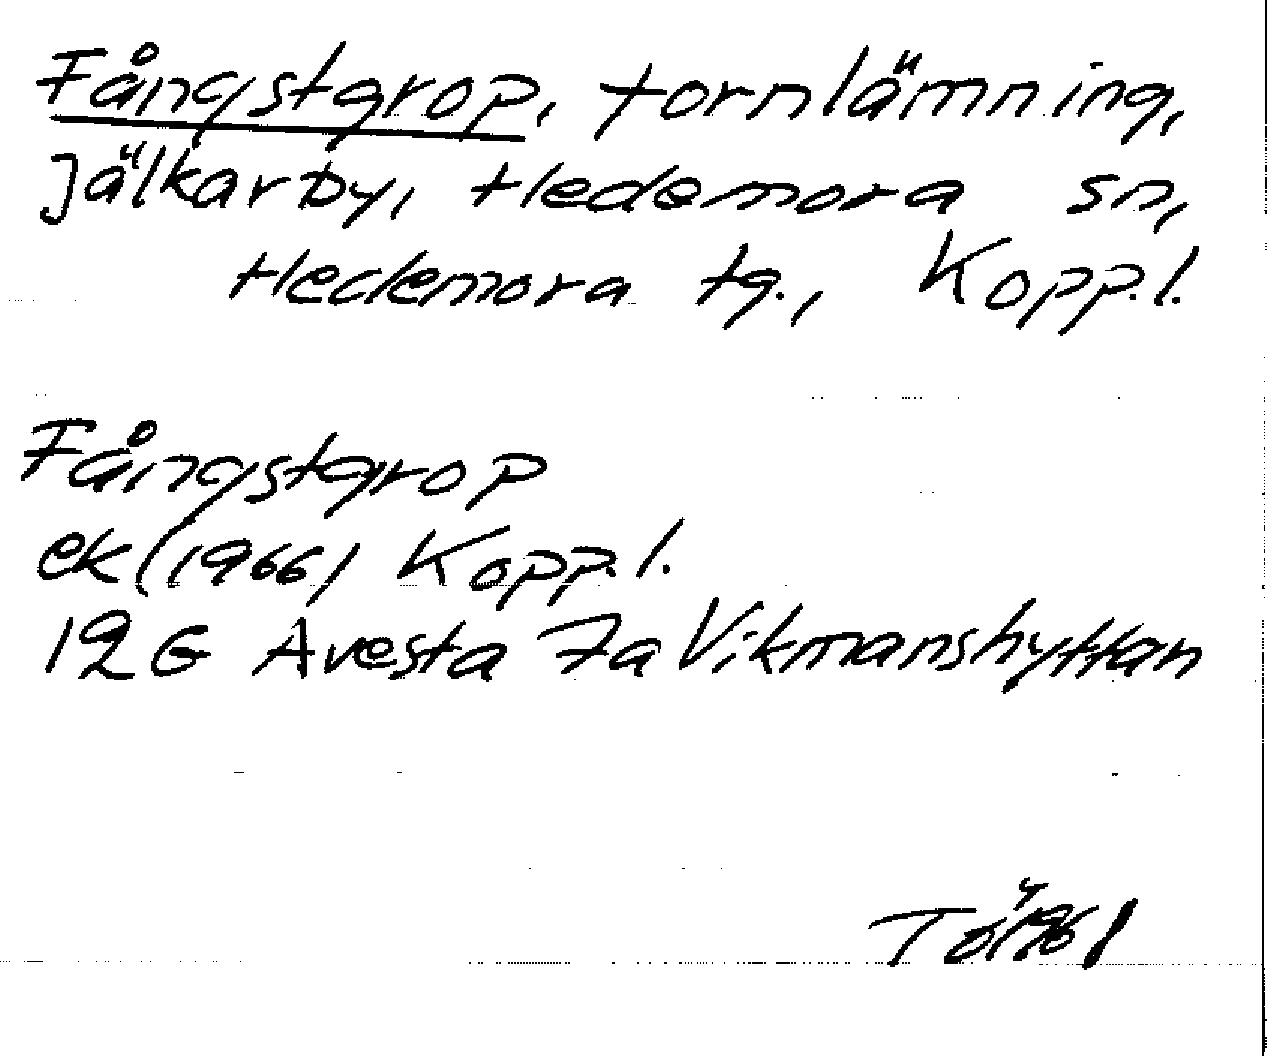 Fångstgrop, fornlämning,
Jälkarby, Hedemora sn,
Hedemora tg., Kopp.l.
Fångstgrop
ek (1966) Kopp.l.
12 G Avesta 7a Vikmanshyttan